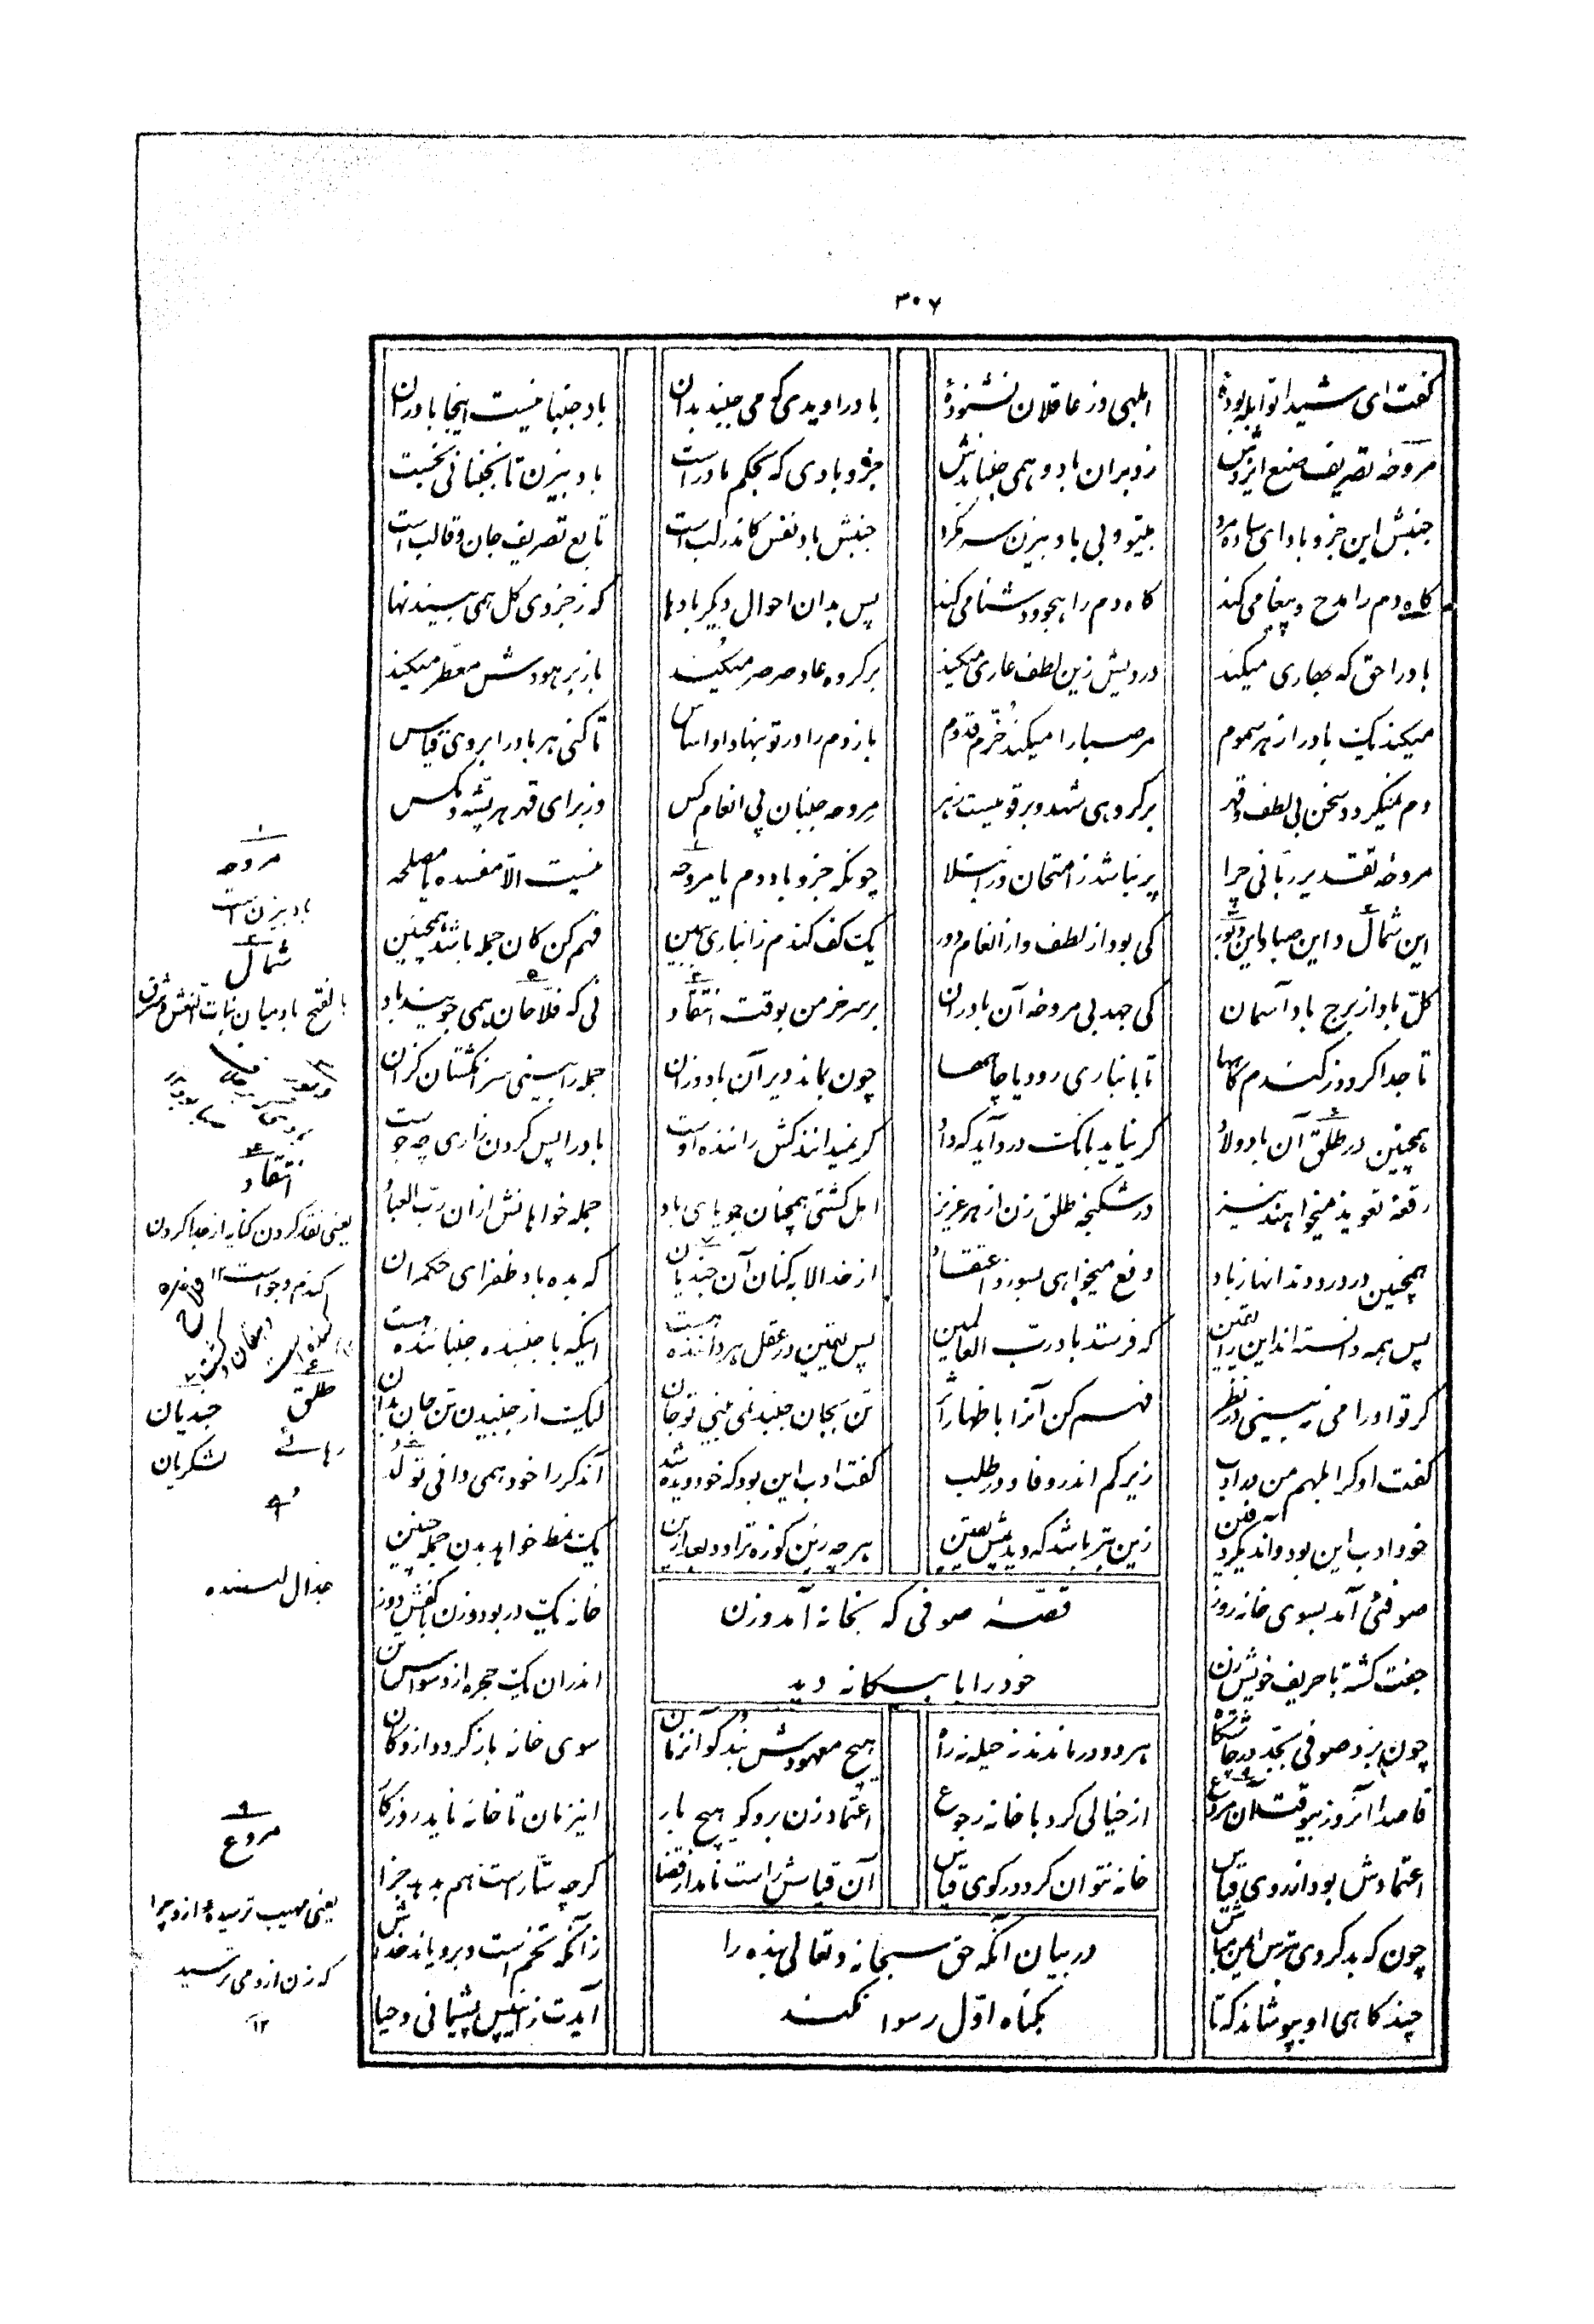 ۳۰۷
گفت ای شیدا تو ابله بودهٔ ابلهی وز عاقلان نشنودهٔ باد را دیدی که می جنبد بدان باد جنبانیست اینجا بادران
مروحه تصریف صنع ایزدش زد بران باد و همی جنباندش جزو بادی که بحکم ما درست باد بیزن تا نجنبانی نجست
جنبش این جزو باد ای ساده مرد بیتو و بی باد بیزن سر نکرد جنبش باد نفس کاندر لب است تابع تصریف جان و قالب است
گاه دم را مدح و پیغامی کند گاه دم را هجو و دشنامی کند پس بدان احوال دیگر بادها که ز جزوی کل همی بیند نها
باد را حق گه بهاری میکند در دیش زین لطف عاری میکند بر گروه عاد صرصر میکند باز بر هودش معطر میکند
میکند یک باد را زهر سموم مر صبا را میکند خرّم قدوم باد دم را در تو بنهاد او اساس تا کنی هر باد را بروی قیاس
دم نمیگردد سخن بی لطف و قهر بر گروهی شهد و بر قومیست زهر مروحه جنبان پی انعام کس وز برای قهر هر پشه و مگس
مروحه تقدیر ربّانی چرا پر نباشد ز امتحان و ابتلا چونکه جزو باد دم یا مروحه نیست الّا مفسده یا مصلحه
این شمال و این صبا و این دبور کی بود از لطف و از انعام دور یک کف گندم ز انباری ببین فهم کن کان جمله باشد همچنین
کلّ باد از برج باد آسمان کی جهد بی مروحه آن بادران بر سر خرمن بوقت انتقاد نی که فلاحان همی جویند باد
تا جدا گردد ز گندم کاهها تا بانباری رود یا چاهها چون بماند دیر آن باد وزان جمله را بینی سر انگشتان گزان
همچنین در طلق آن باد ولاد گر نیاید بانگ درد آید که داد گر نمیدانند کش راننده اوست باد را پس کردن زاری چه جوست
رقعه تعویذ میخواهند نیز در شکنجه طلق زن از هر عزیز اهل کشتی همچنان جویای باد جمله خواهانش از آن ربّ العباد
همچنین در درد دندانها ز باد دفع میخواهی بسوز و اعتقاد از خدا لابه کنان آن جندیان که بده باد ظفر ای حکمران
پس همه دانسته اند این را یقین که فرستد باد ربّ العالمین پس یقین در عقل هر داننده هست اینکه با جنبنده جنباننده هست
گر تو او را می نبینی در نظر فهم کن آنرا باظهار اثر تن بجان جنبد نمی بینی تو جان لیک از جنبیدن تن جان بدان
گفت او گر ابلهم من در ادب زیرکم اندر وفا و در طلب گفت ادب این بود که خود دیده شد آن دگر را خود همی دانی تو لد
خود ادب این بود و اند یگر دفین زین بتر باشد که دیدیمش یقین هر چه زین کوزه تراود بعد ازین یک نمط خواهد بدن جمله چنین
قصّهٔ صوفی که بخانه آمد و زن
خود را با بیگانه دید
صوفئی آمد بسوی خانه روز خانه یک در بود و زن با کفش دوز
جفت گشته با حریف خویش زن اندران یک حجره از وسواس تن
چون بزد صوفی بجد در چاشتگاه هر دو در ماندند نه حیله نه راه هیچ معهودش نبد کو آنزمان سوی خانه باز گردد از دکان
قاصدا آنروز بیوقت آن مروع از خیالی کرد با خانه رجوع اعتماد زن برو کو هیچ بار اینزمان تا خانه نامد روز کار
اعتمادش بود اندروی قیاس خانه نتوان کرد در کوی قیاس آن قیاسش راست نامد از قضا گرچه ستّارست هم بدهد جزا
چون که بد کردی بترس ایمن مباش زآنکه تخمست و برویاند خداش
در بیان آنکه حق سبحانه و تعالی بنده را
بگناه اوّل رسوا نکند
چند گاهی او بپوشاند که تا آیدت ز انپس پشیمانی و حیا
۱
مروحه
بادبیزن است
۲
شمال
بالفتح باد میان بنات النعش و مشرق
۴
انتقاد
یعنی نقد کردن کنایه از جدا کردن
گندم و جو است ۱۲
طلق
رهائے
جندیان
لشکریان
لد
جدال کننده
۹
مروع
یعنی مهیب ترسیده از و چرا
که زن ازو می ترسید
۱۲